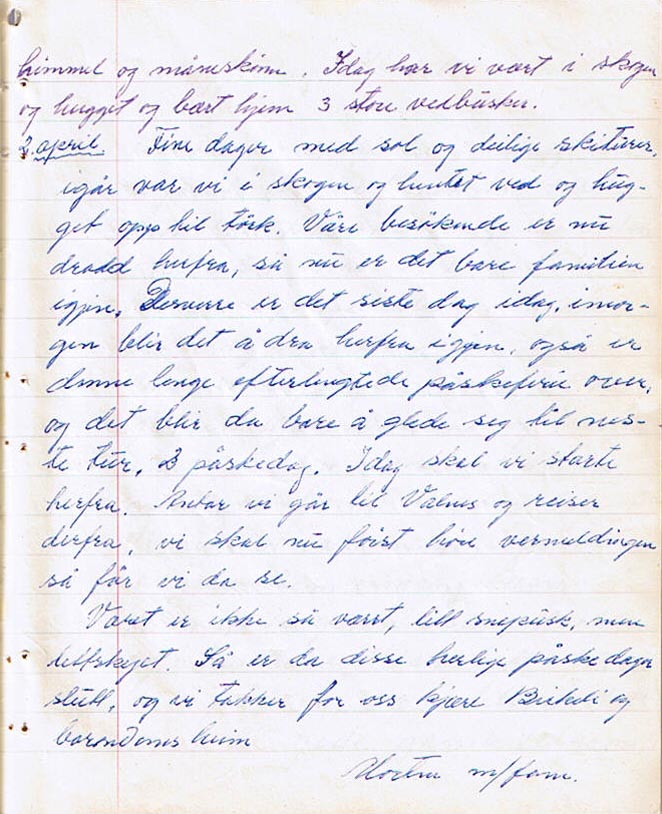 himmel og måneskinn. Idag har vi vært i skogen
og hugget og bært hjem 3 store vedbusker.
2. april. Fine dager med sol og deilige skiturer,
igår var vi i skogen og hentet ved og hug-
get opp til tørk. Våre besøkende er nu
dradd herfra, så nu er det bare familien
igjen. Desverre er det siste dag idag, imor-
gen blir det å dra herfra igjen, også er
denne lenge efterlengtede påskeferie over,
og det blir da bare å glede seg til nes-
te tur. 3 påskedag. Idag skal vi starte
herfra. Antar vi går til Valnes og reiser
derfra, vi skal nu først høre vermeldingen
så får vi da se.
Været er ikke så værst, litt snøpusk, men
lettskyet. Så er da disse herlige påskedager
slutt, og vi takker for oss kjære og
heim
m/fam.